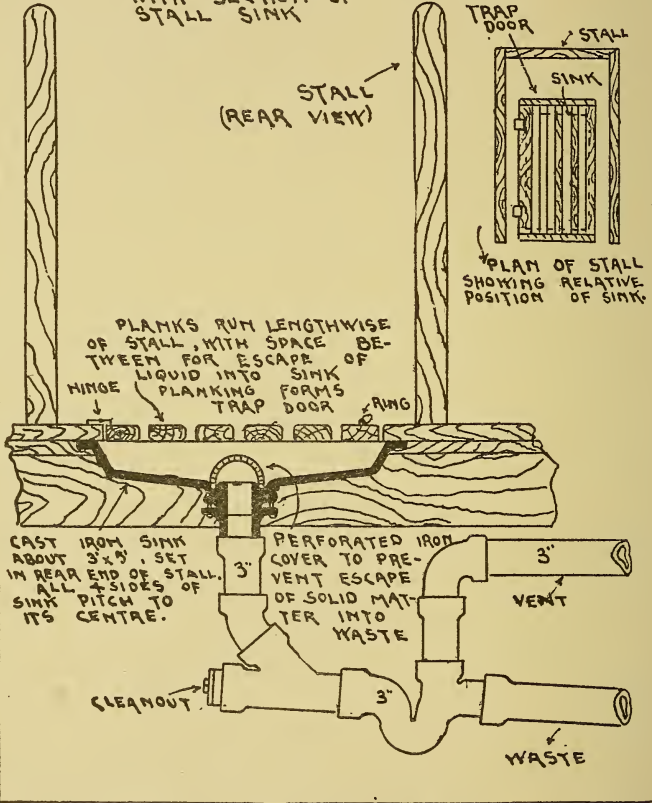 STALL SINK
TRAP
DOOR
STALL
SINK
STALL
(REAR VIEW)
PLAN OF STALL
SHOWING RELATIVE
POSITION OF SINK.
PLANKS RUN LENGTHWISE
OF STALL, WITH SPACE BE-
TWEEN FOR ESCAPE OF
LIQUID INTO SINK
PLANKING FORMS
TRAP DOOR
HINGE
RING
CAST IRON SINK
ABOUT 3'x5', SET
IN REAR END OF STALL.
ALL 4 SIDES OF
SINK PITCH TO
ITS CENTRE.
3"
PERFORATED IRON
COVER TO PRE-
VENT ESCAPE
OF SOLID MAT-
TER INTO
WASTE
3"
VENT
CLEANOUT
3"
WASTE